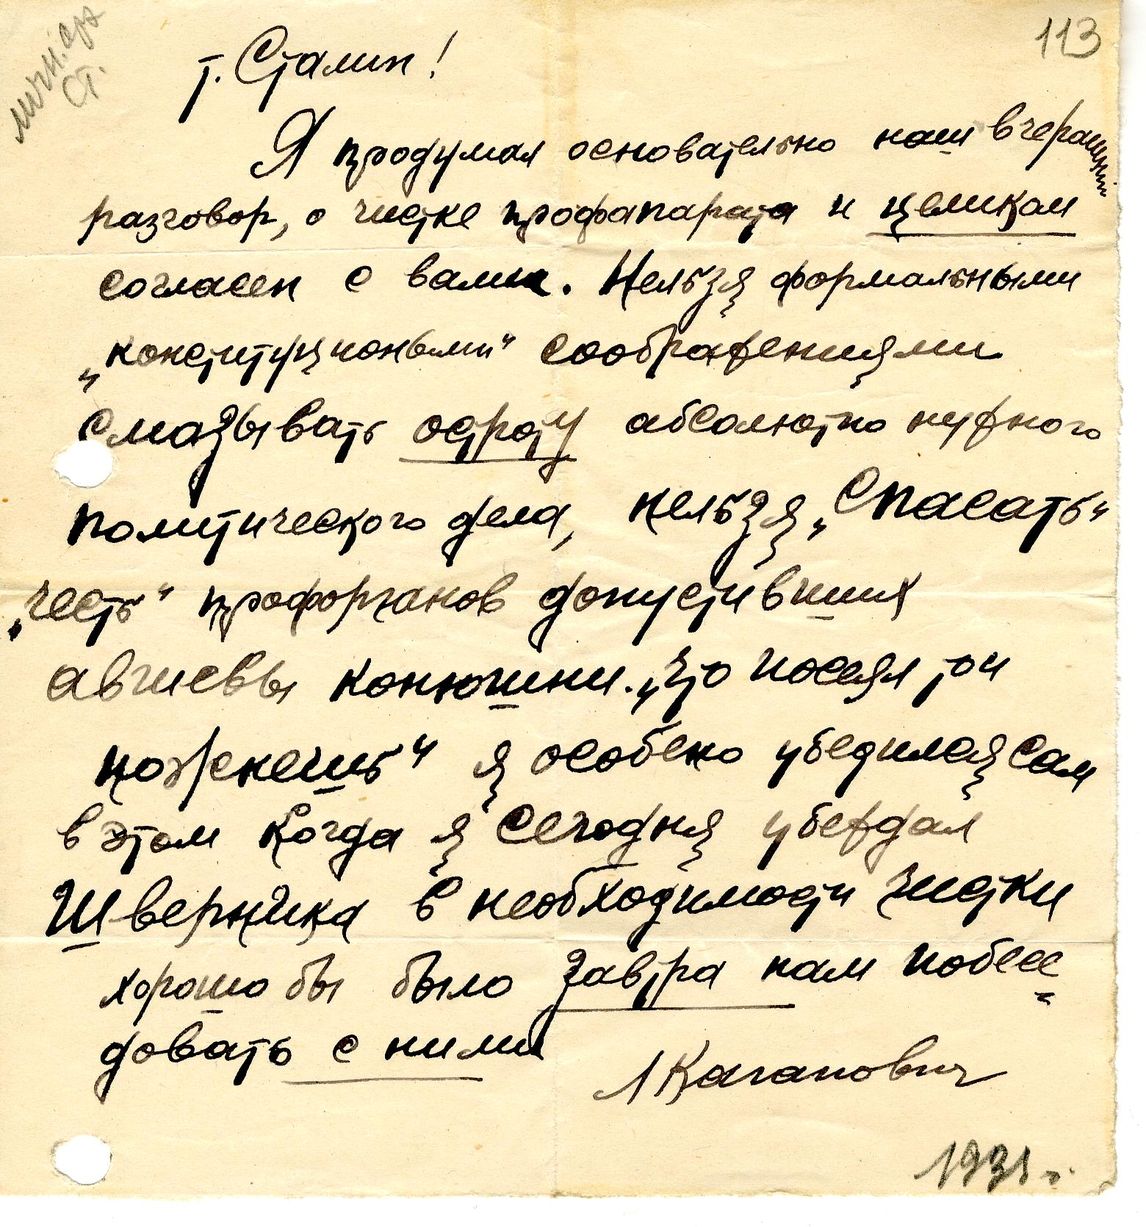 личн. арх
Ст.
113
т. Сталин!
Я продумал основательно наш вчерашний
разговор, о чистке профапарата и целиком
согласен с вами. Нельзя формальными
„конституциоными“ соображениями
смазывать остроту абсолютно нужного
политического дела, нельзя „спасать“
„честь“ профорганов допустивших
авгиевы конюшни. „Что посеял то и
пожнешь“ я особено убедился сам
в этом когда я сегодня убеждал
Шверника в необходимости чистки
хорошо бы было завтра нам побесе
довать с ними
ЛКаганович
1931 г.